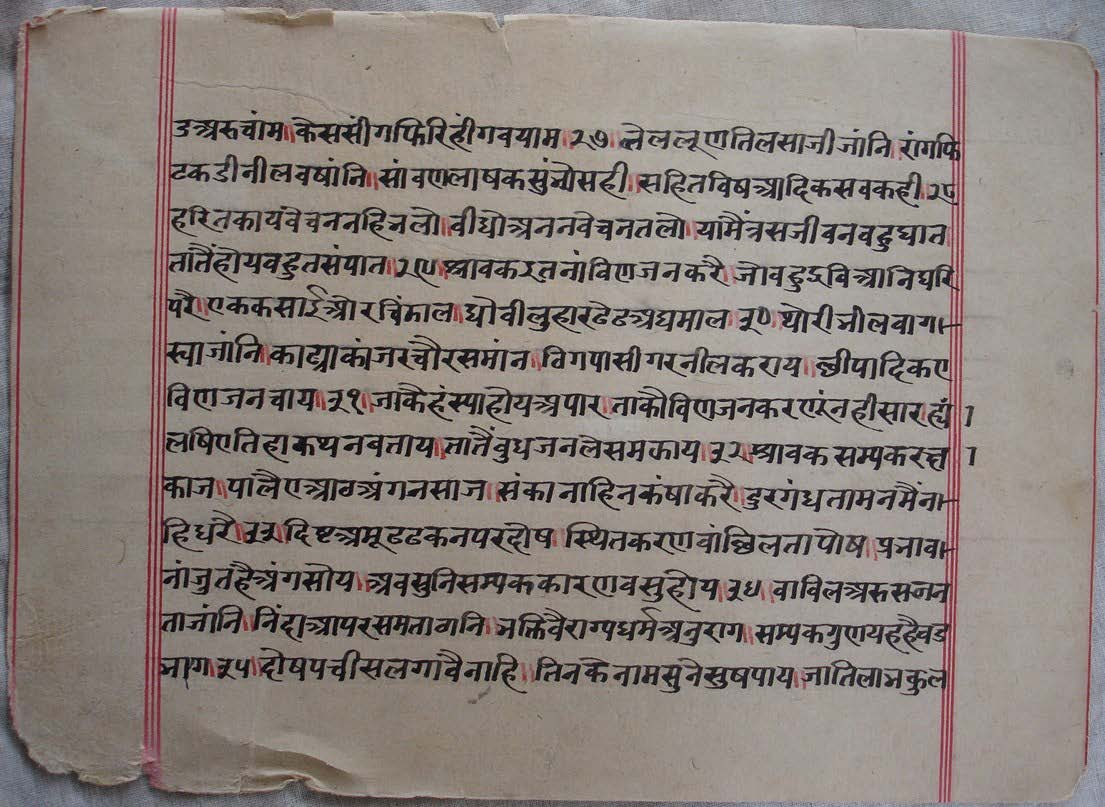 उअरुचांम ॥ केससींगफिरिहींगवयाम २७ तेललूणतिलसाजीजांनि ॥ रांगफि
टकडीनीलवषांनि ॥ सांवणलाषकसुंन्योसही ॥ सहितविषआदिकसवकही २८
हरितकायंवेचननहिनलो ॥ वीधोअननवेचनतलो ॥ यामैंत्रसजीवनवहुघात
तातैंहोयवहुतसंपात २९ श्रावकइतनांविणजनकरै ॥ जोवहुद्रविआनिघरि
परै ॥ एककसाईऔरचिंमाल ॥ धोवीलुहारढेढअधमाल ३० थोरीभीलवागा
स्याजांनि ॥ काछाकांजरचौरसमांन ॥ ठिगपासीगरनीलकराय ॥ छीपादिकए
विणजनचाय ३१ जाकैहंस्पाहोयअपार ॥ ताकौविणजनकरणंनहीसार ॥ ह्यां
लषिएतिहाकथनवताय ॥ तातैंवुधजनलेसमकाय ३२ श्रावकसम्पकरछा
काज ॥ पालैएआठअंगनसाज ॥ संकानाहिनकंषाकरै ॥ दुरगंधतामनमैंना
हिधरै ३३ दिष्टअमूढढकनपरदोष ॥ स्थितकरणवांछिलतापोष ॥ प्रभावा
नांजुतहैअंगसोय ॥ अवसुनिसम्पककारणवसुहोय ३४ वाविलअरुसजन
ताजांनि ॥ निंदाआपरसमताठानि ॥ भक्तिवैराग्यधर्मअनुराग ॥ सम्पकगुणयहहैवड
भाग ३५ दोषपचीसलगावैनाहि ॥ तिनकेनामसुनेसुषपाय ॥ जातिलाभकुल